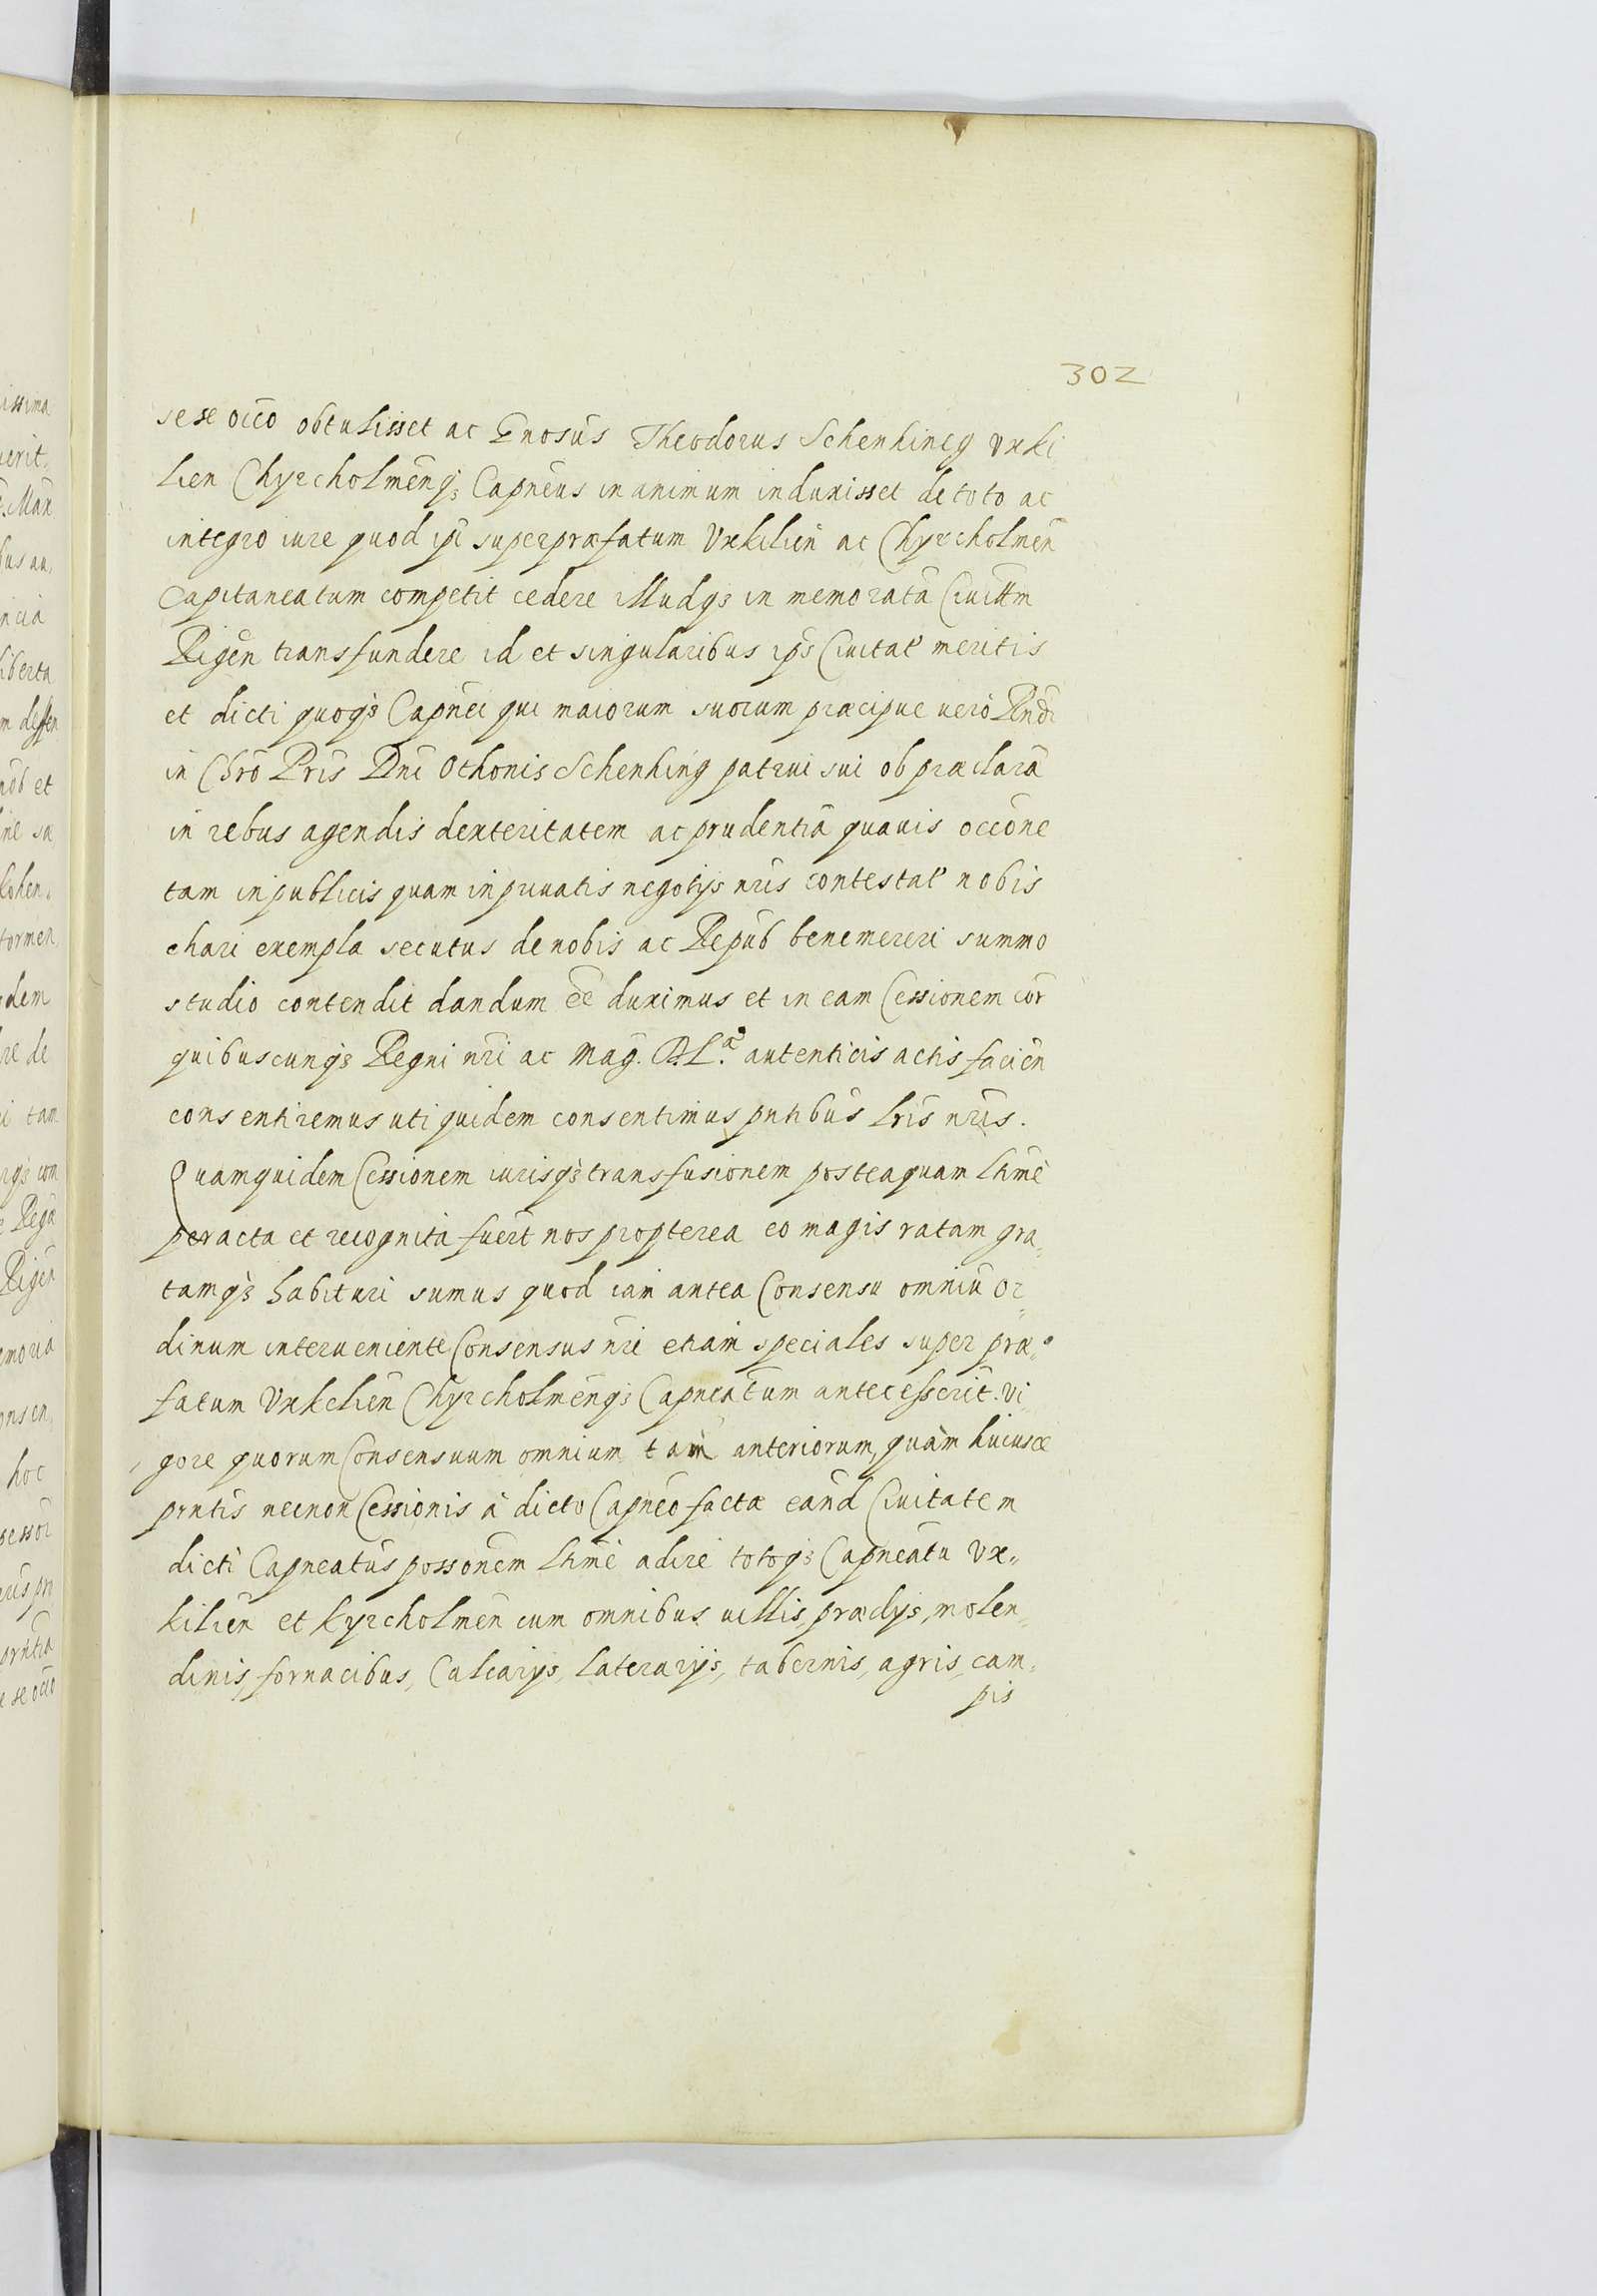 302
sese occō obtulisset ac Gnosūs Theodorus Schenking Vxki
lien Chyrcholmēnq3 Capnēus in animum induxisset de toto ac
integro iure quod ipi super præfatum Vxkiliēn ac Chyrcholmēn
Capitaneatum competit cedere illudq3 in memoratā Ciuittm
Rigēn transfundere id et singularibus ips Ciuitat meritis
et dicti quoq3 Capnēi qui maiorum suorum præcipue uerò Rndi
in Chrō Pris Dni Othonis Schenking patrui sui ob præclarā
in rebus agendis dexteritatem ac prudentiā quauis occōne
tam in publicis quam in priuatis negotijs nris contestat nobis
chari exempla secutus de nobis ac Repub benemereri summo
studio contendit dandum ēē duximus et in eam Cessionem cor
quibuscunq3 Regni nri ac Mag. D. L.ᵃ autenticis actis faciēn
consentiremus uti quidem consentimus pntibus lris nris.
Quam quidem Cessionem iurisq3 transfusionem posteaquam ltimè
peracta et recognita fuerit nos propterea eo magis ratam gra„
tamq3 habituri sumus quod iam antea Consensu omniū or„
dinum interueniente Consensus nri etiam speciales super præ„
fatum Vxkeliēn Chyrcholmēnq3 Capneātum antecesserīt. Vi
gore quorum Consensuum omnium tam anteriorum, quàm huiusce
prntis necnon Cessionis à dicto Capnēo factæ eānd Ciuitatem
dicti Capneatūs possonem ltimè adire totoq3 Capneātu Vx„
kiliēn et Kyrcholmēn cum omnibus uillis, prædijs, molen„
dinis, fornacibus, Calcarijs, laterarijs, tabernis, agris, cam„
pis